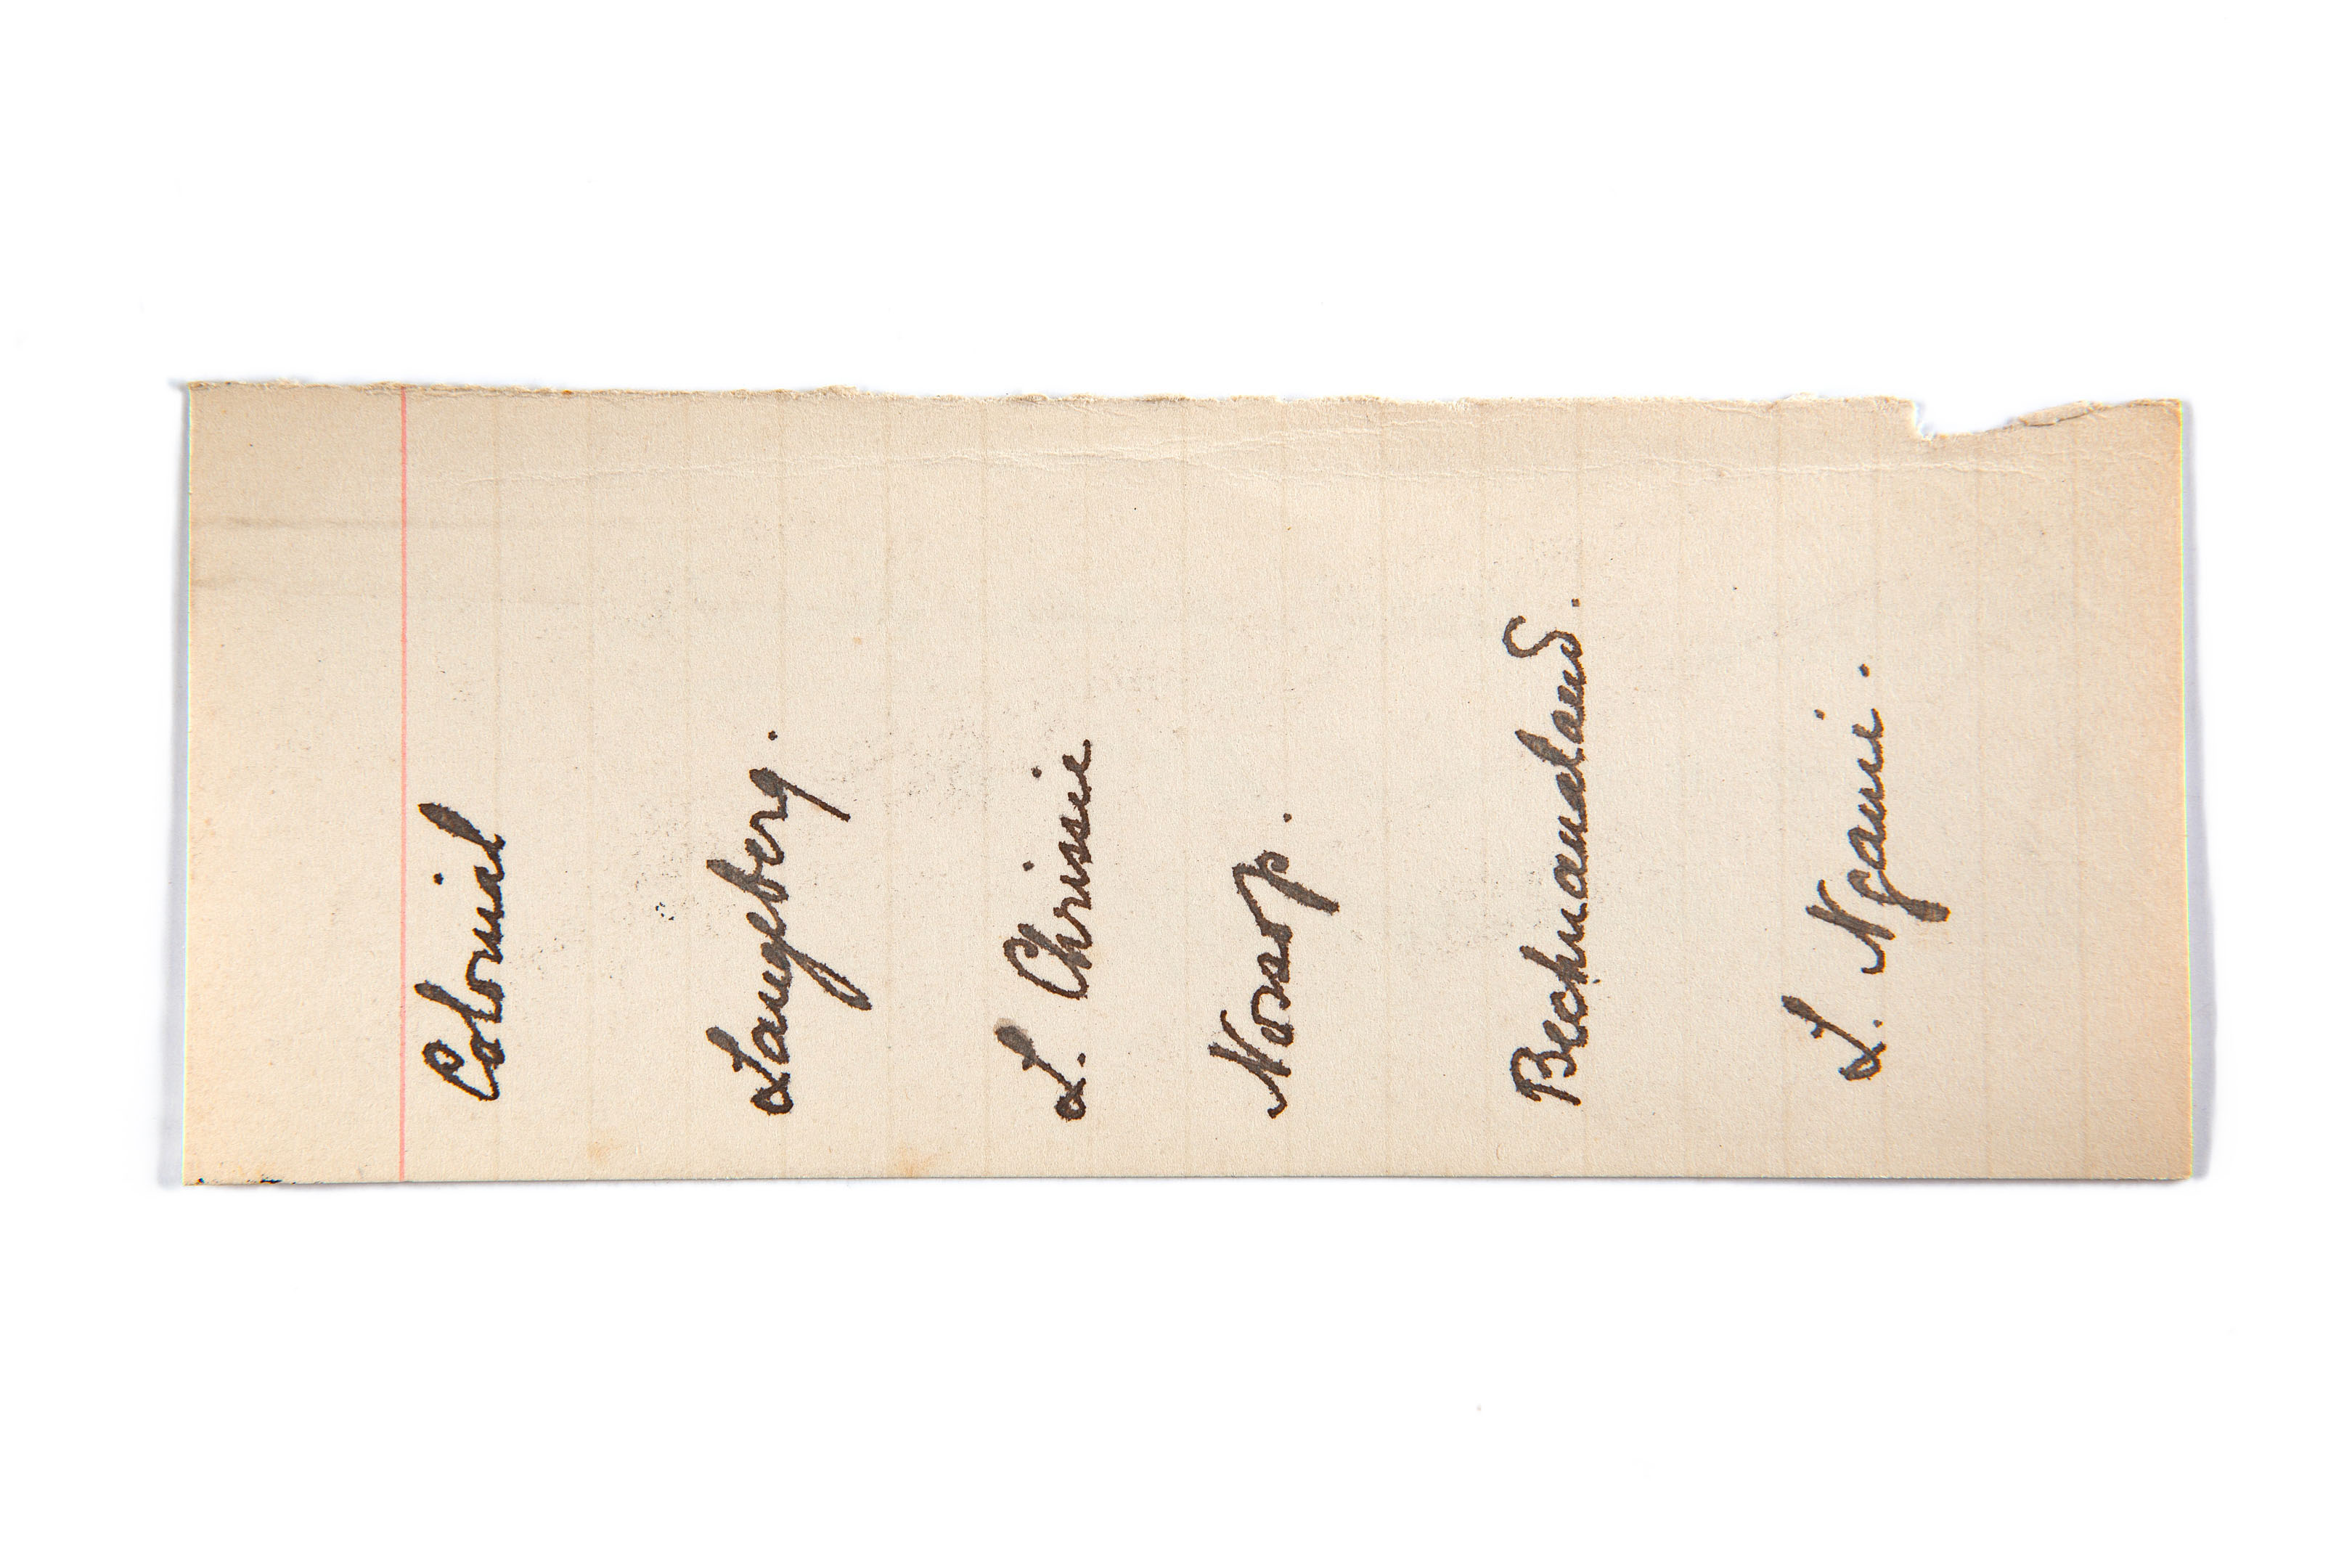 Colonial
Langeberg.
L. Chrissie
Nossop.
Bechuanaland.
L. Ngami.